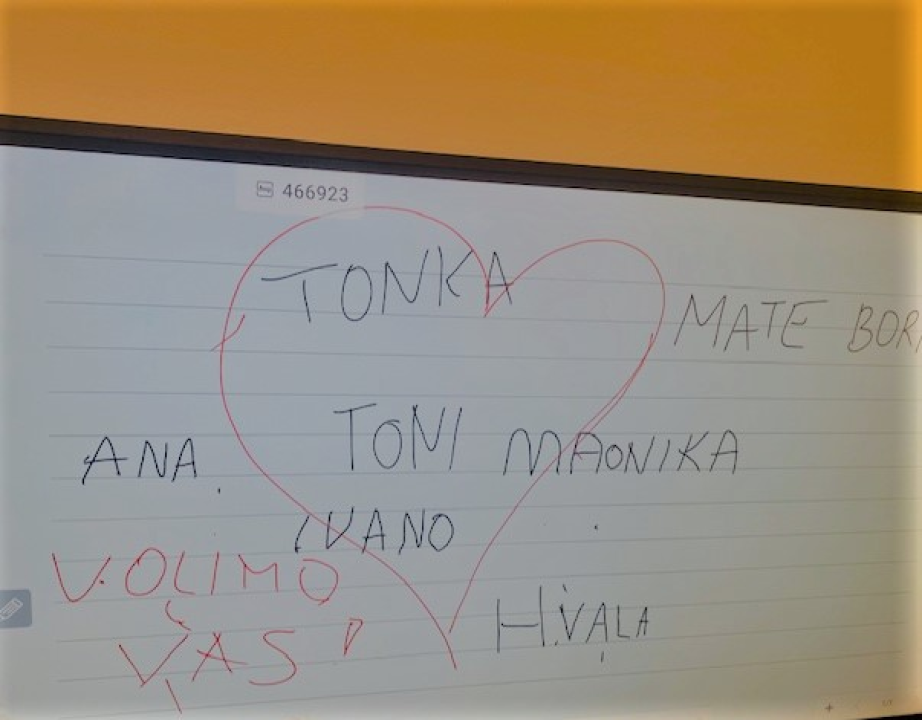 466923
TONKA
MATE
TONI
MAONIKA
ANA
IVANO
VOLIMO
VAS!
HVALA